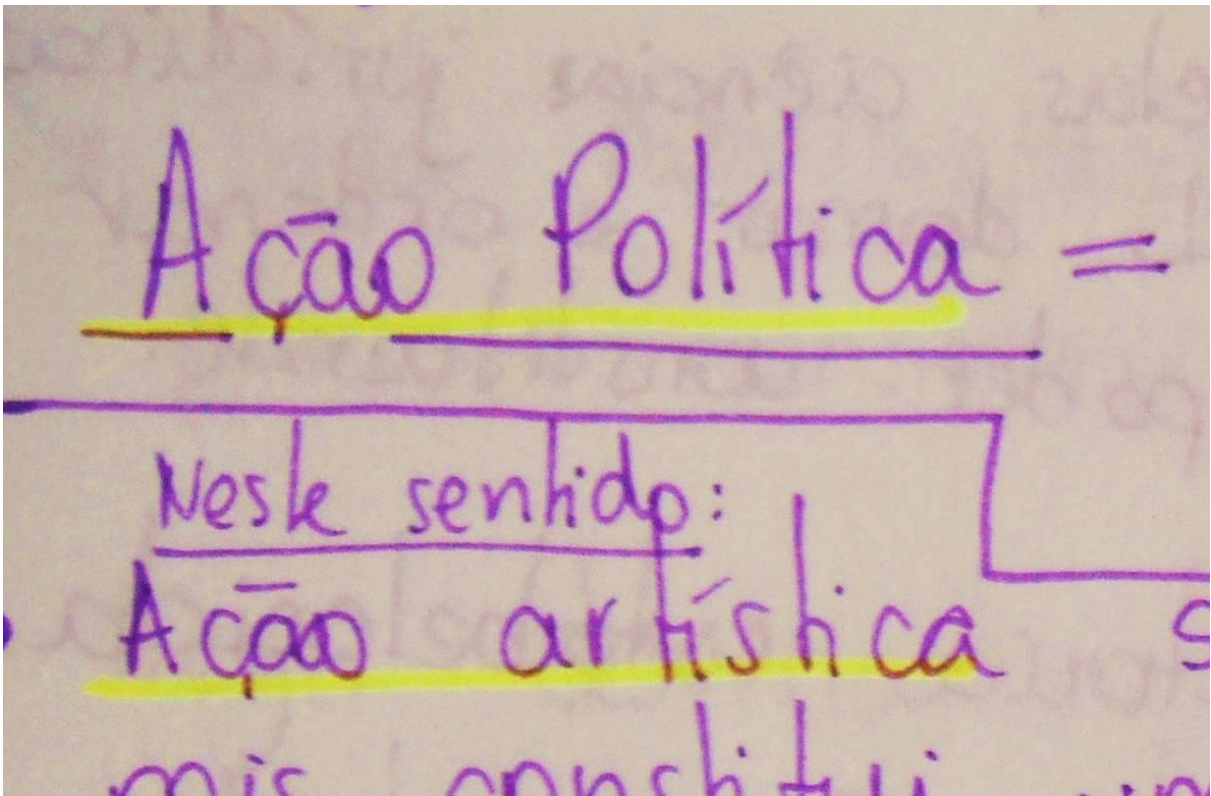 Ação Política =
Neste sentido:
Ação artística
constitui